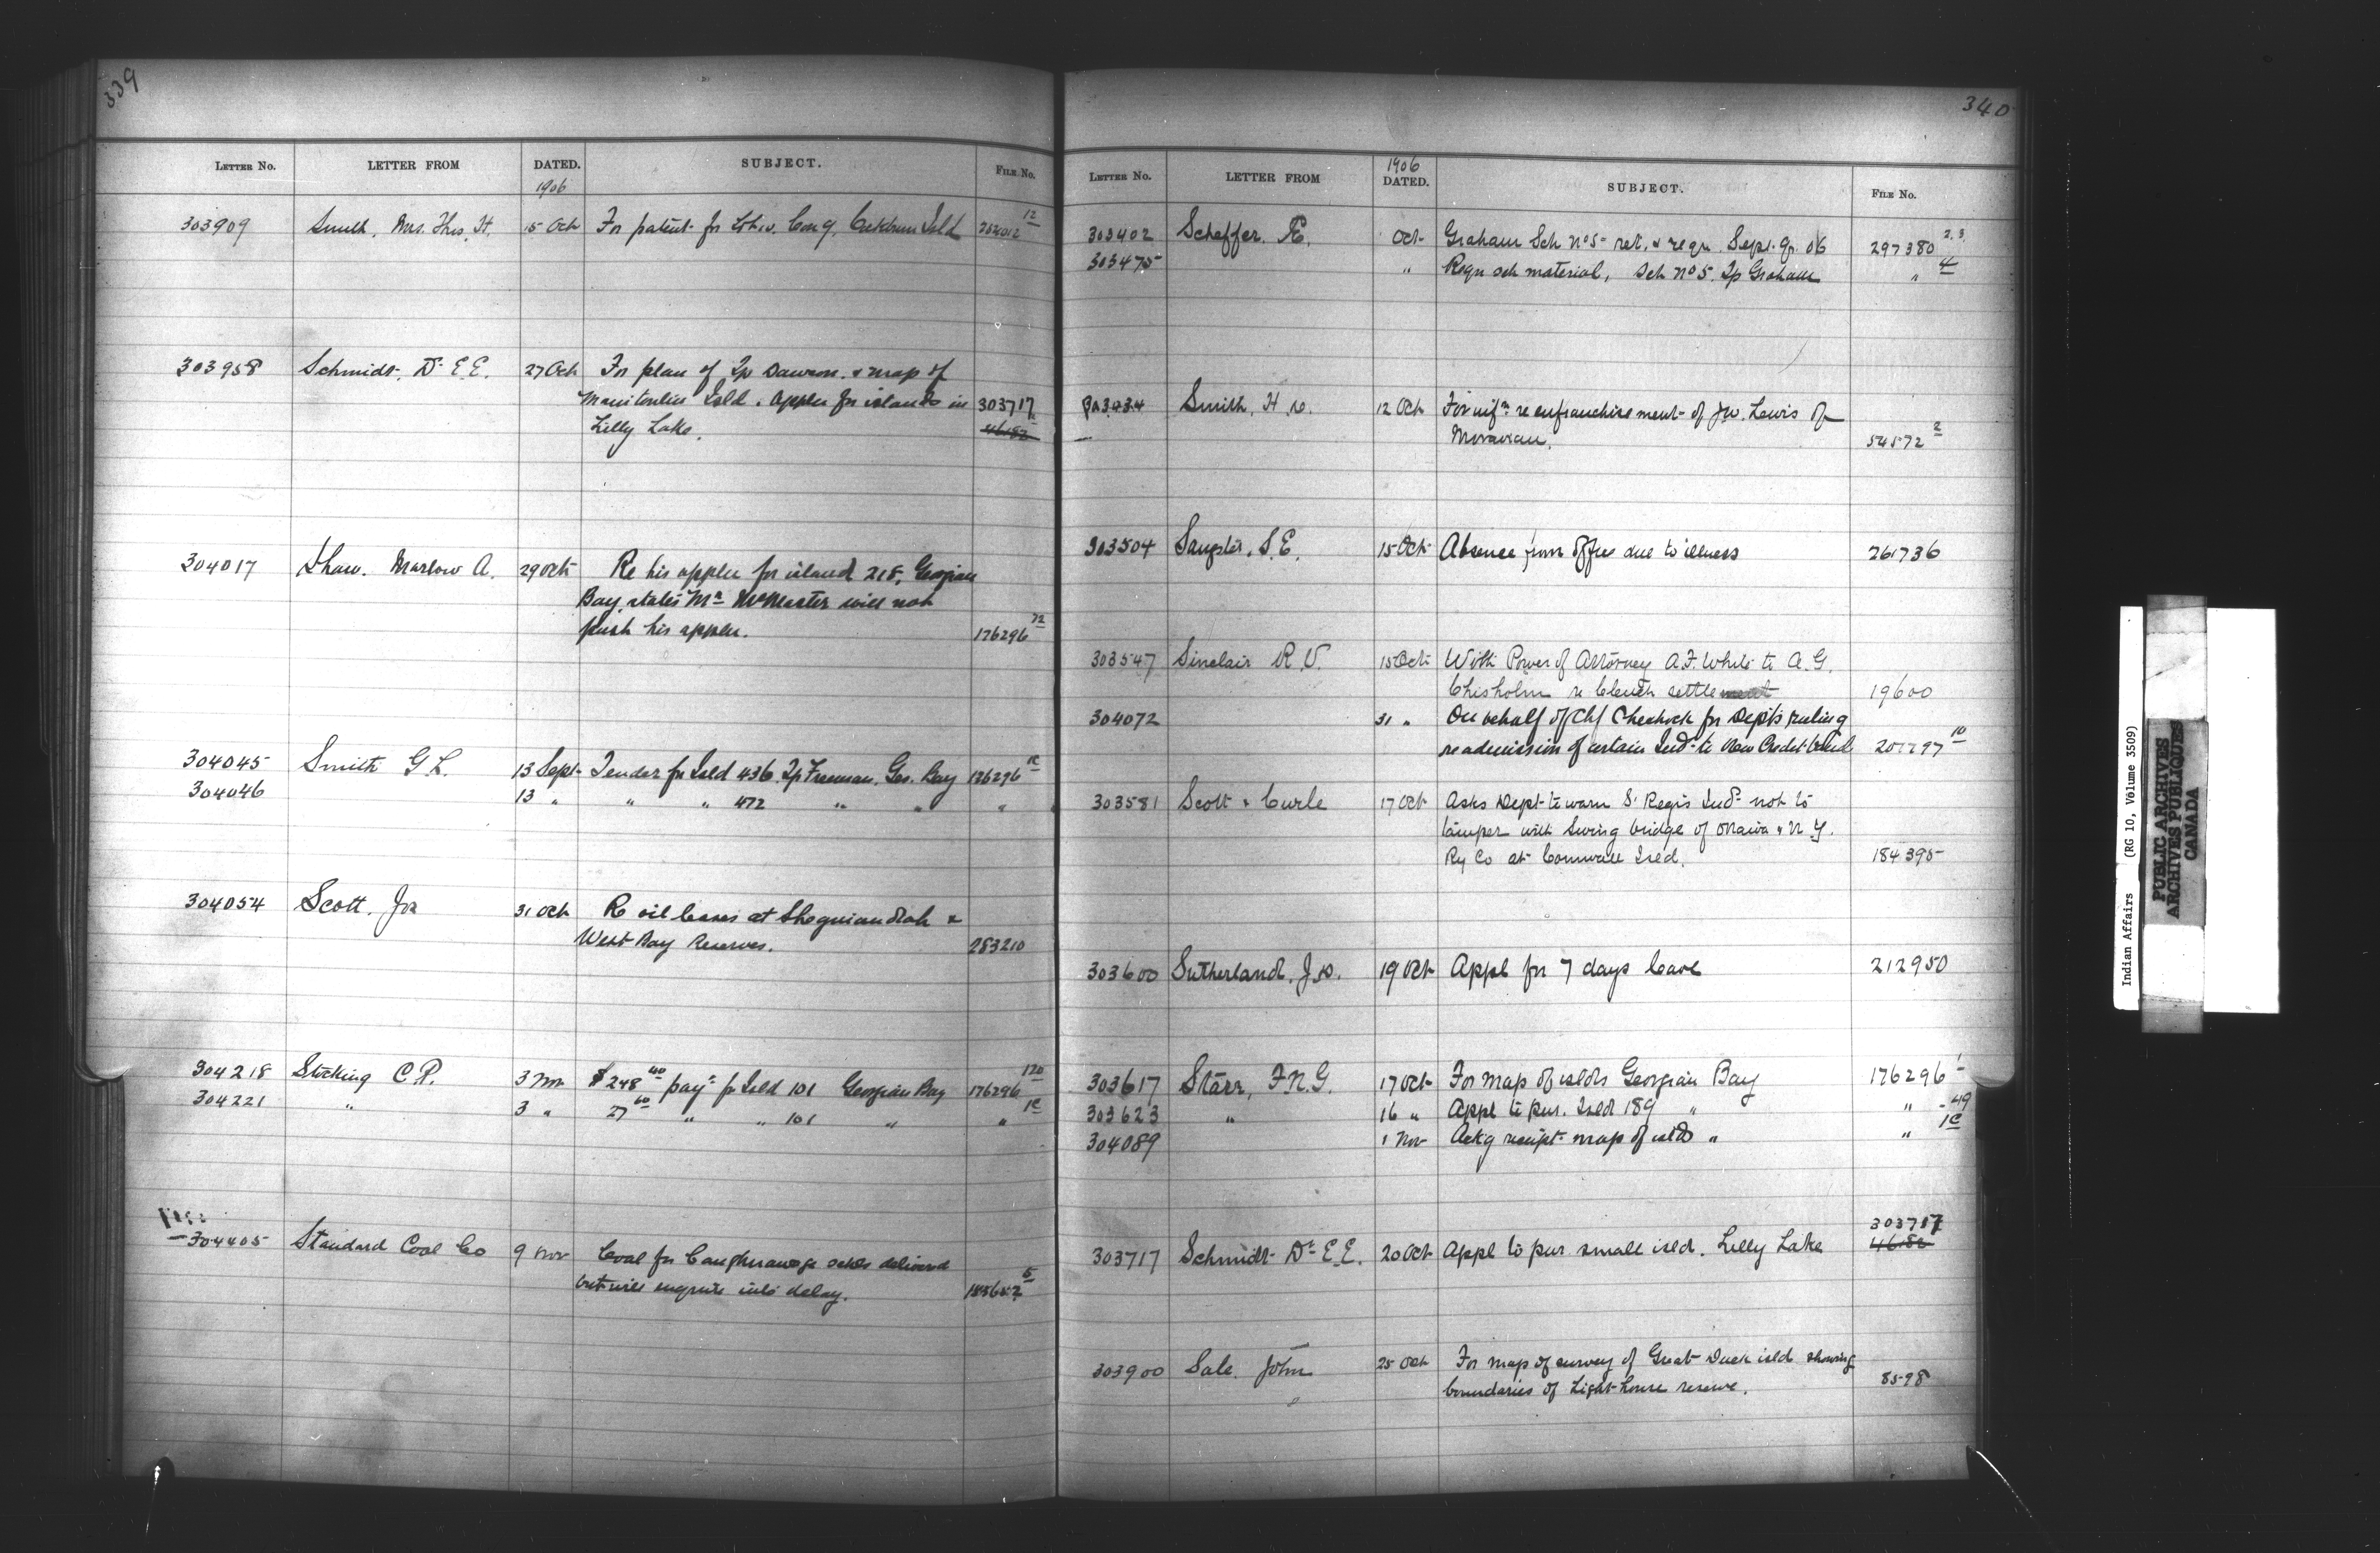 339
LETTER NO. LETTER FROM DATED. SUBJECT. FILE NO.
1906
303909 Smith, Mrs. Thos. H. 15 Oct For patent for Con 9, Isld 12
303958 Schmidt, Dr E.E. 27 Oct For plan of Tp Dawson & map of
Manitoulin Isld. Appln for islands in 303717
Lilly Lake. 46182
304017 Shaw, Marlow A. 29 Oct Re his appln for island 218, Georgian
Bay, states Mr McMaster will not
push his appln. 176296 72
304045 Smith G L. 13 Sept Tender for Isld 436, Tp Freeman, Geo. Bay 176296 1C
304046 13 " " " 472 " " "
304054 Scott, Jos 31 Oct Re oil leases at Sheguiandah &
West Bay Reserves. 283210
304218 Stocking C.P. 3 Nov $248 40 payt for Isld 101 Georgian Bay 176296 120
304221 " 3 " 27 60 " " 101 " " 1C
304405 Standard Coal Co 9 Nov Coal for Caughnawaga schls delivered
but will enquire into delay. 5
340
1906
LETTER NO. LETTER FROM DATED. SUBJECT. FILE NO.
303402 Scheffer, E. Oct Graham Sch No 5 ret. & reqn Sept. qr. 06 297380 2.3
303475 " Reqn sch material, Sch No 5, Tp Graham " 4
Smith, H. 12 Oct For infn re enfranchisement of Jno. Lewis of
Moravian. 54572 2
303504 Sangster, S.E. 15 Oct Absence from office due to illness 261736
303547 Sinclair R.V. 15 Oct With Power of Attorney A.F. White to A.G.
Chisholm re Clench settlement 19600
304072 31 " On behalf of Chf for Dept's ruling
re admission of certain Inds to New Credit band 10
303581 Scott & Curle 17 Oct Asks Dept to warn St Regis Inds not to
tamper with swing bridge of Ottawa & N.Y.
Ry Co at Cornwall Isld. 184395
303600 Sutherland, J. 19 Oct Appl for 7 days leave 212950
303617 Starr, F.N.G. 17 Oct For map of islds Georgian Bay 176296 1
303623 " 16 " Appl to pur. Isld 189 " " 49
304089 1 Nov Ackg receipt map of islds " " 1C
303717
303717 Schmidt Dr E.E. 20 Oct Appl to pur small isld. Lilly Lake 46182
303900 Sale, John 25 Oct For map of survey of Great Duck isld showing
boundaries of Light-house reserve. 8598
Indian Affairs (RG 10, Volume 3509)
PUBLIC ARCHIVES
ARCHIVES PUBLIQUES
CANADA